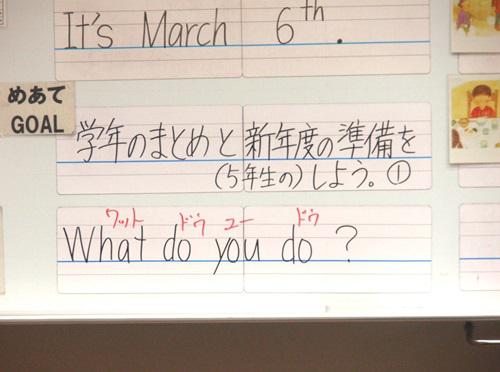 It's March 6th.
めあて
GOAL
学年のまとめと新年度の準備を
(5年生の)しよう。①
ワット ドゥ ユー ドゥ
What do you do ?